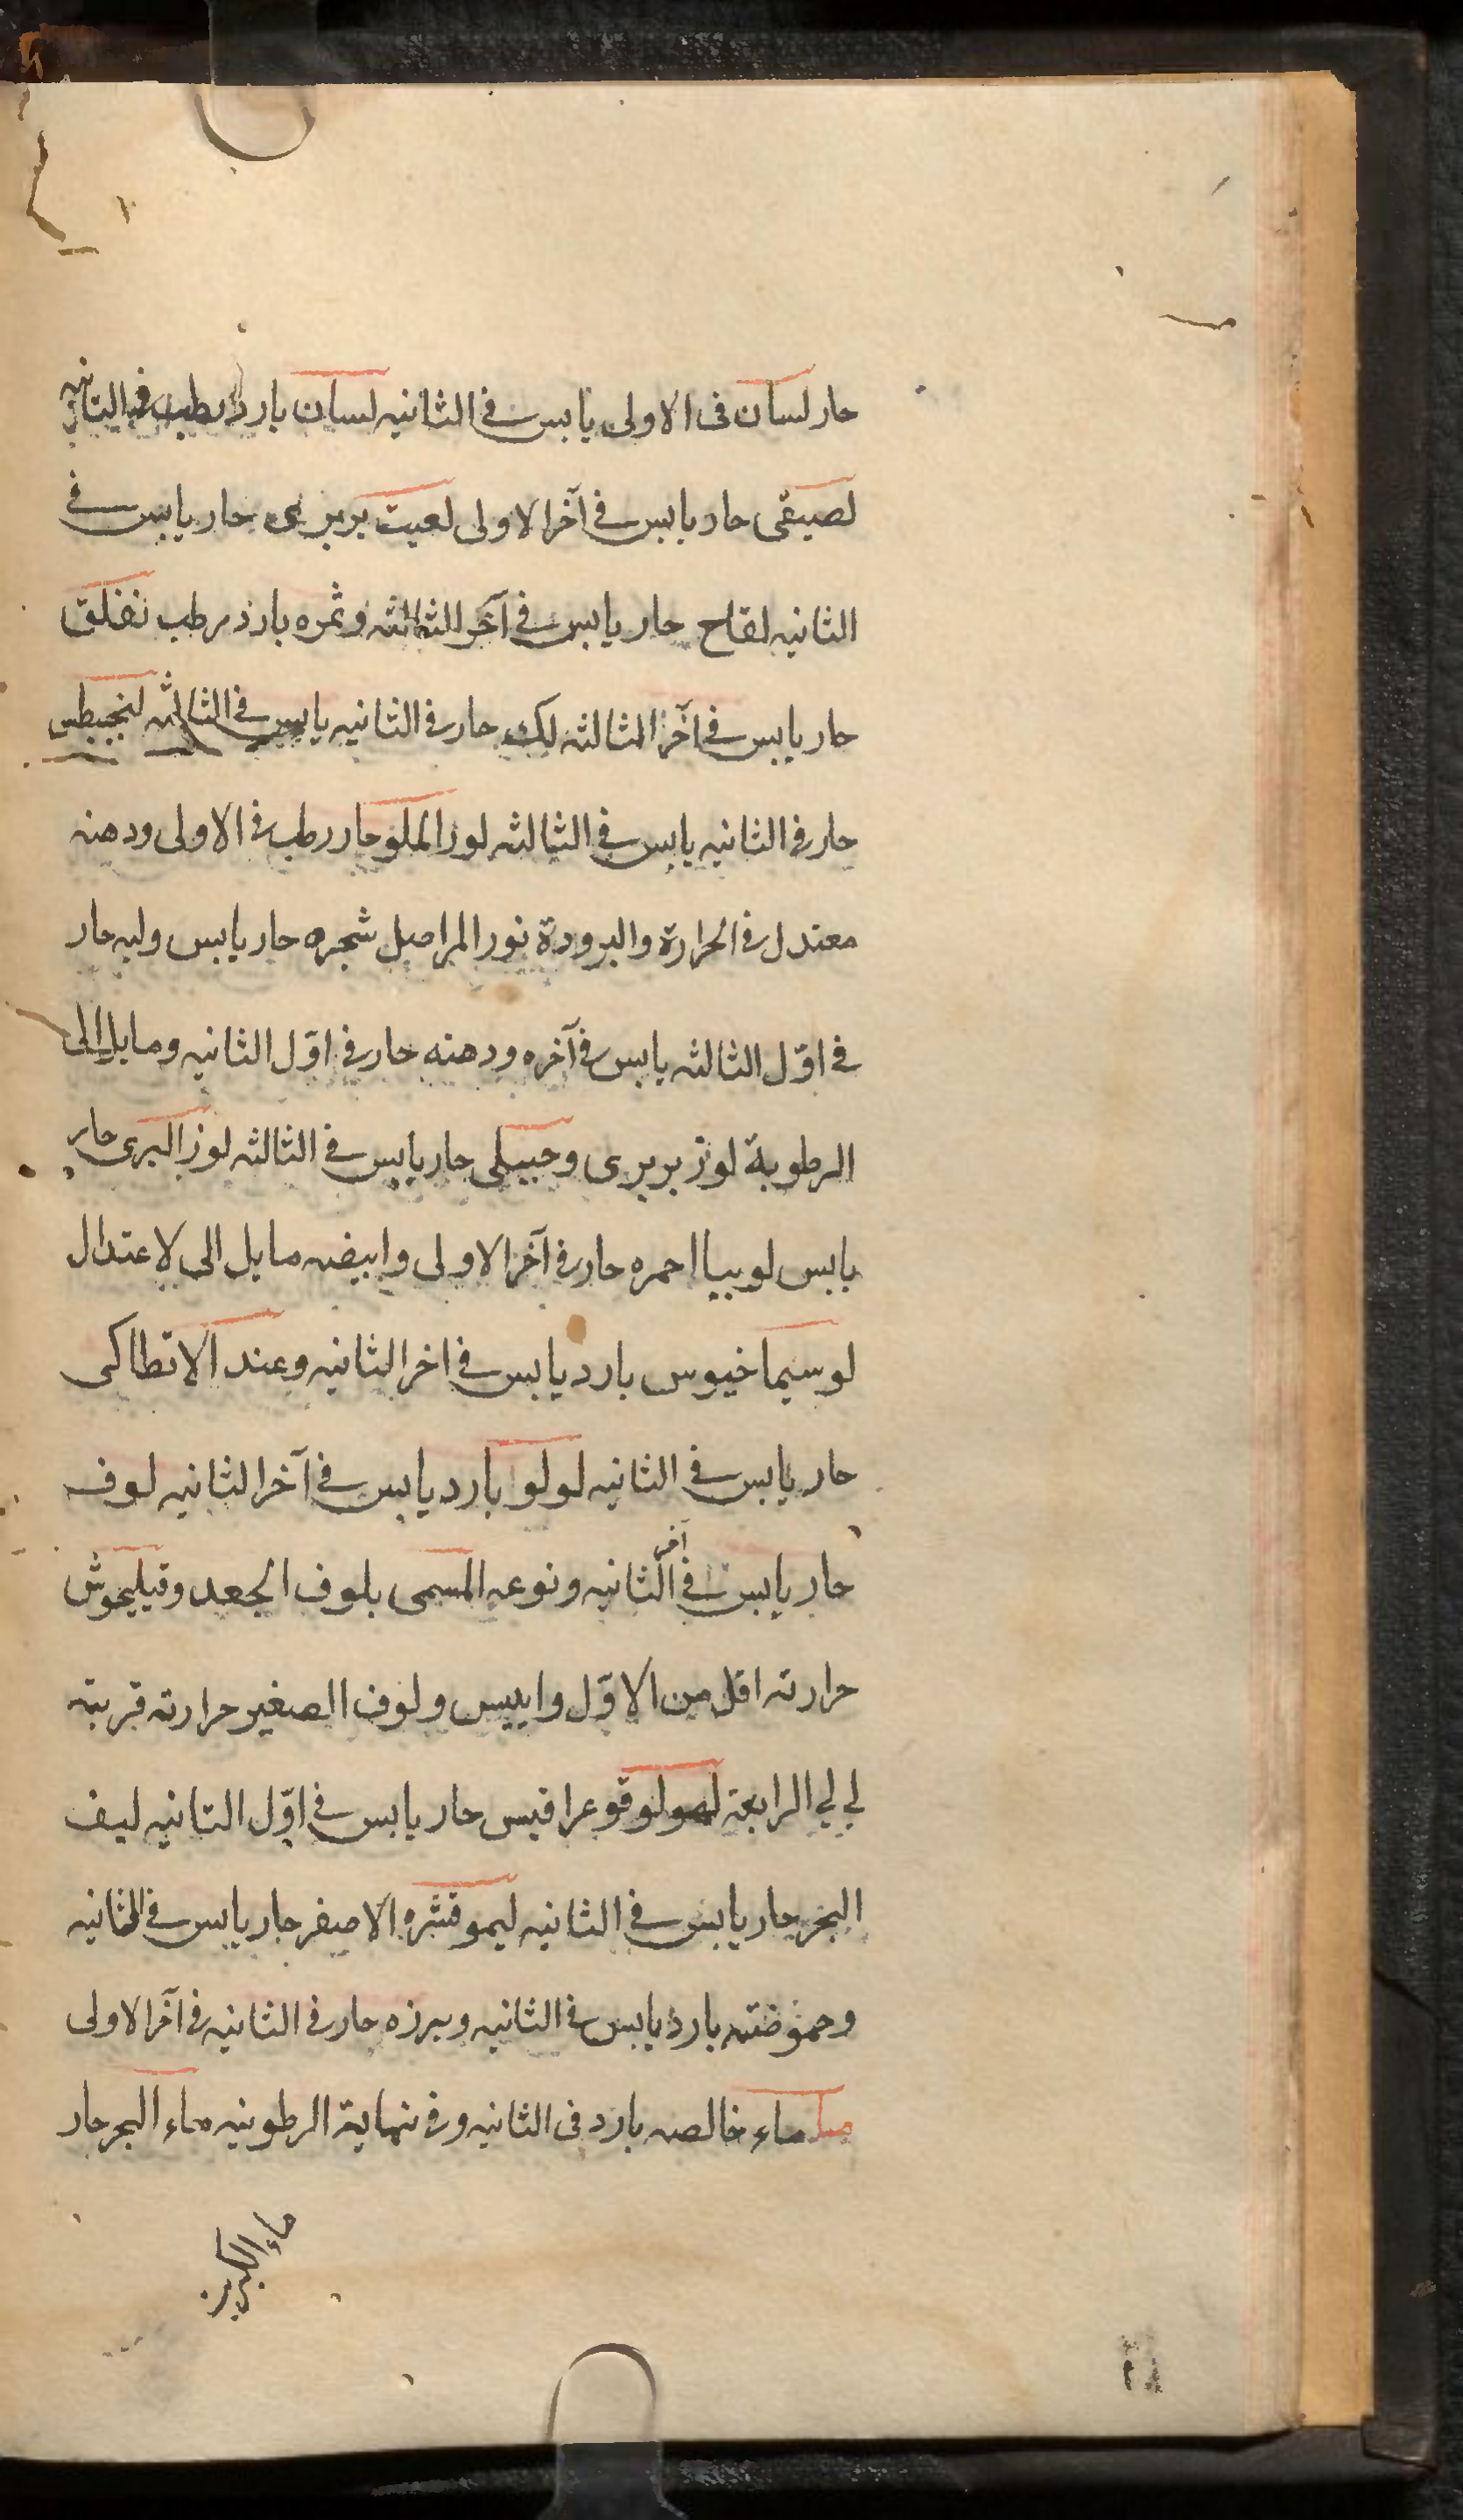 حار لسان فى الاولى يابس فى الثانيه لسان بارد رطب فى الثانيه
لصيقى حار يابس فى آخر الاولى لعبت بربرى حار يابس فى
الثانيه لقاح حار يابس فى آخر الثالثه وثمره بارد رطب نفلق
حار يابس فى آخر الثالثه لك حار فى الثانيه يابس فى الثالثه لنجيطس
حار فى الثانيه يابس فى الثالثه لوز الملو حار رطب فى الاولى ودهنه
معتدل فى الحرارة والبرودة نور المر اصل شجره حار يابس ولبه حار
فى اوّل الثالثه يابس فى آخره ودهنه حار فى اوّل الثانيه ومايل الى
الرطوبة لوز بربرى وجبيلى حار يابس فى الثالثه لوز البرى حار
يابس لوبيا احمره حار فى آخر الاولى وابيضه مايل الى لاعتدال
لوسيماخيوس بارد يابس فى اخر الثانيه وعند الانطاكى
حار يابس فى الثانيه لولو بارد يابس فى آخر الثانيه لوف
حار يابس فى آخر الثانيه ونوعه المسمى بلوف الجعد وفيليجوش
حرارته اقل من الاوّل وايبس ولوف الصغير حرارته قريبة
لى لى الرابعة لوقوعراقيس حار يابس فى اوّل الثانيه ليف
البحر حار يابس فى الثانيه ليمو قشره الاصفر حار يابس فى الثانيه
وحموضته بارد يابس فى الثانيه وبرزه حار فى الثانيه فى آخر الاولى
ماء خالصه بارد فى الثانيه وفى نهاية الرطوبيه ماء البحر حار
ماء الكبريز